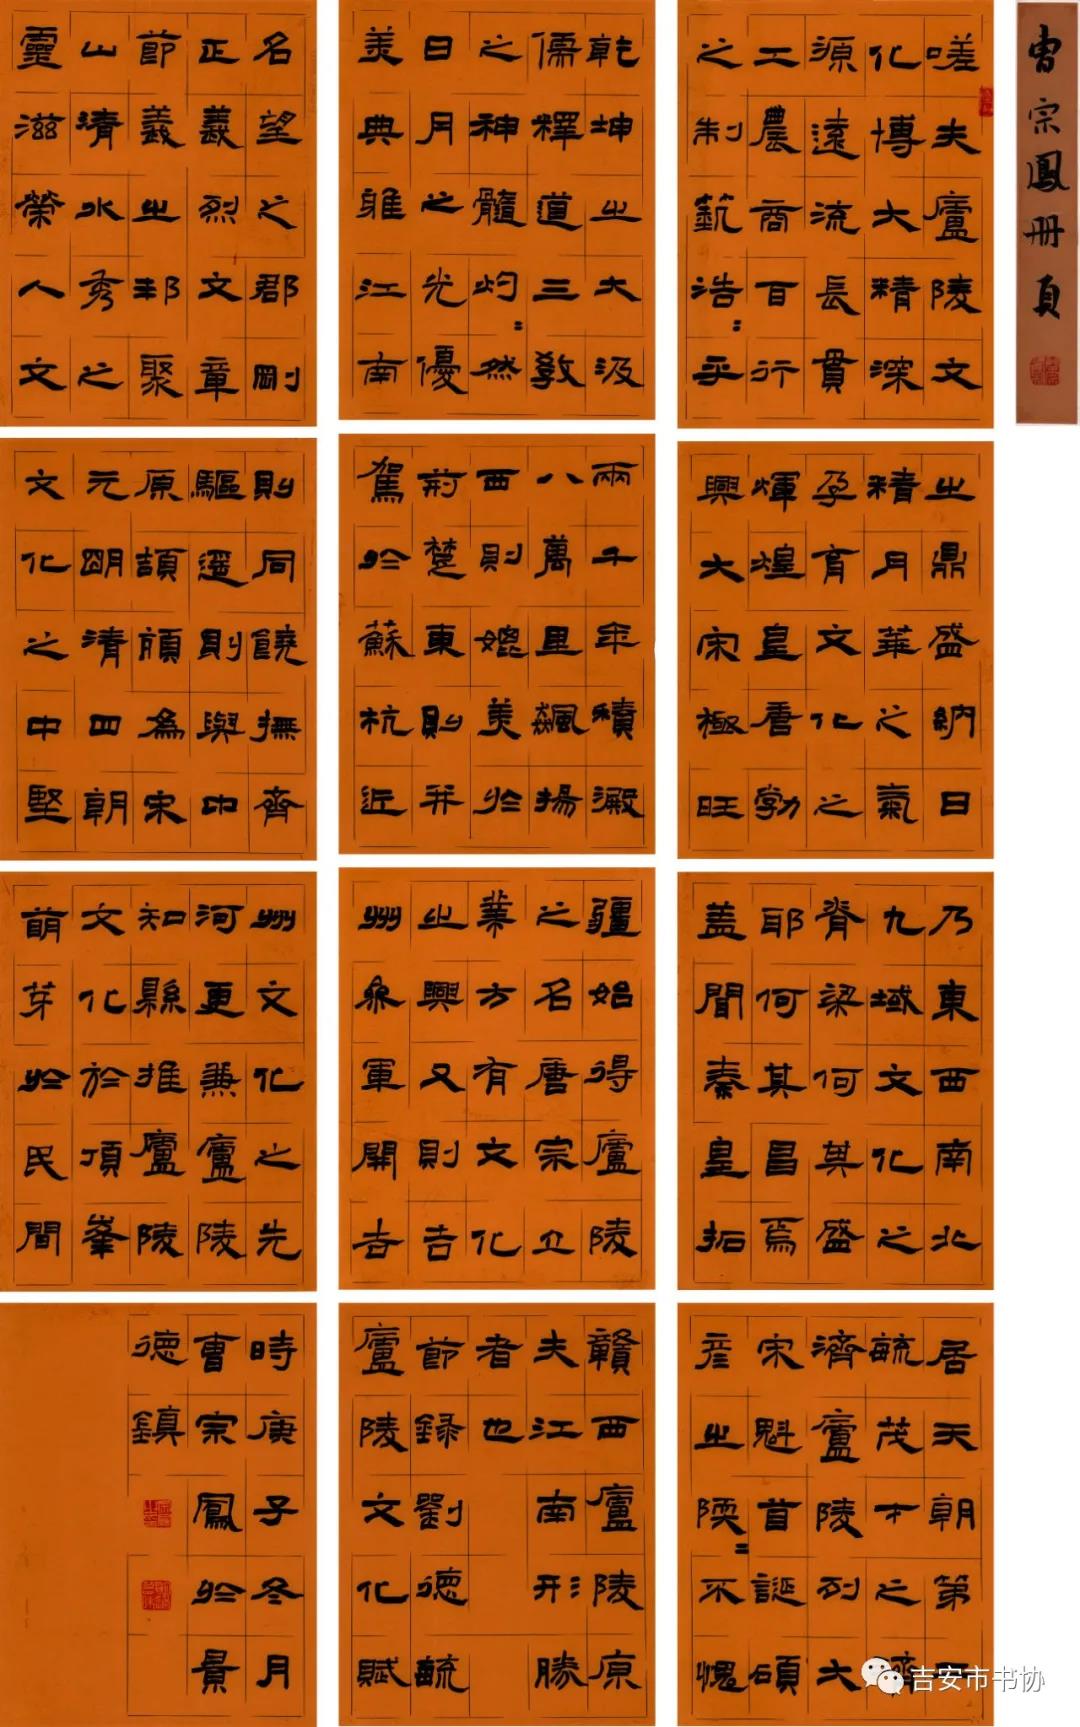 曹宗鳳冊頁
嗟夫廬陵文
化博大精深
源遠流長貫
工農商百行
之制藝浩〻乎
乾坤之大汲
儒釋道三教
之神髓灼〻然
日月之光優
美典雅江南
名望之郡剛
正義烈文章
節義之邦聚
山清水秀之
靈滋榮人文
之鼎盛納日
精月華之氣
孕育文化之
輝煌皇唐勃
興大宋極旺
兩千年積澱
八萬里飆揚
西則媲美於
荊楚東則並
駕於蘇杭近
則同饒撫齊
驅遥則與中
原頡頏為宋
元明清四朝
文化之中堅
乃東西南北
九域文化之
脊梁何其盛
耶何其昌焉
蓋聞秦皇拓
疆始得廬陵
之名唐宗立
業方有文化
之興又則吉
州參軍開吉
州文化之先
河更兼廬陵
知縣推廬陵
文化於頂峯
萌芽於民間
居天朝第
毓茂才之濟
濟廬陵列大
宋魁首誕碩
彥之陾〻不愧
贛西廬陵原
夫江南形勝
者也
節録劉德毓
廬陵文化賦
時庚子冬月
曹宗鳳於景
德鎮
吉安市书协